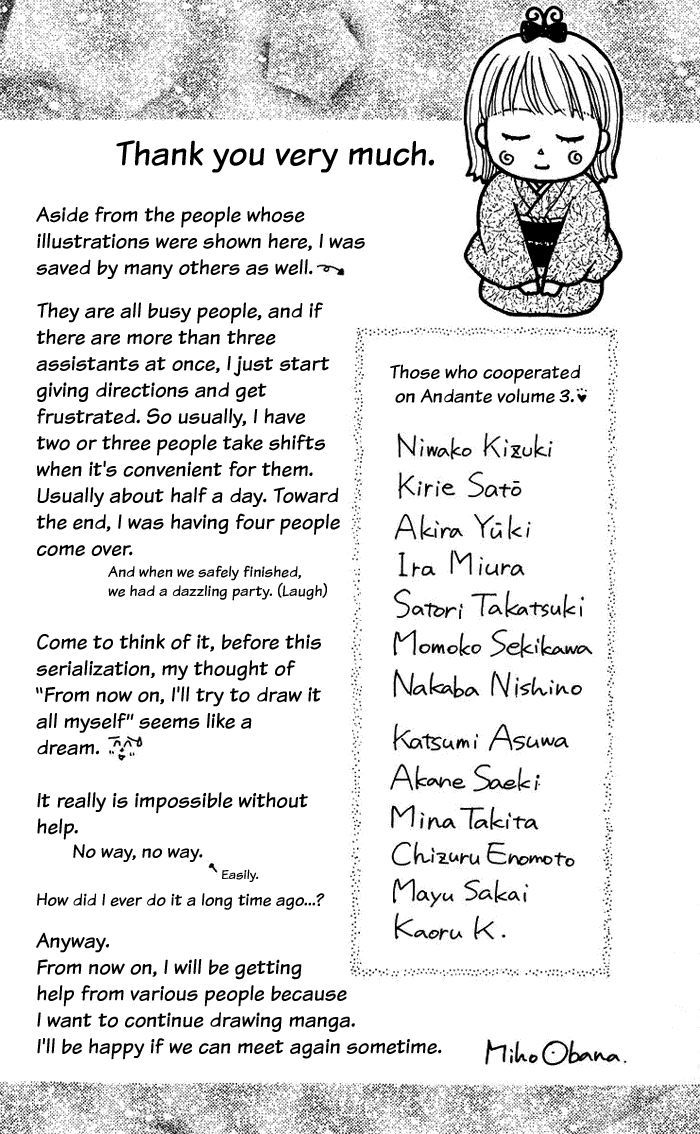 Thank you very much.
Aside from the people whose
illustrations were shown here, I was
saved by many others as well.
They are all busy people, and if
there are more than three
assistants at once, I just start
giving directions and get
frustrated. So usually, I have
two or three people take shifts
when it's convenient for them.
Usually about half a day. Toward
the end, I was having four people
come over.
And when we safely finished,
we had a dazzling party. (Laugh)
Come to think of it, before this
serialization, my thought of
"From now on, I'll try to draw it
all myself" seems like a
dream.
It really is impossible without
help.
No way, no way.
Easily.
How did I ever do it a long time ago...?
Anyway.
From now on, I will be getting
help from various people because
I want to continue drawing manga.
I'll be happy if we can meet again sometime.
Those who cooperated
on Andante volume 3.♥
Niwako Kizuki
Kirie Satō
Akira Yūki
Ira Miura
Satori Takatsuki
Momoko Sekikawa
Nakaba Nishino
Katsumi Asuwa
Akane Saeki
Mina Takita
Chizuru Enomoto
Mayu Sakai
Kaoru K.
Miho Obana.